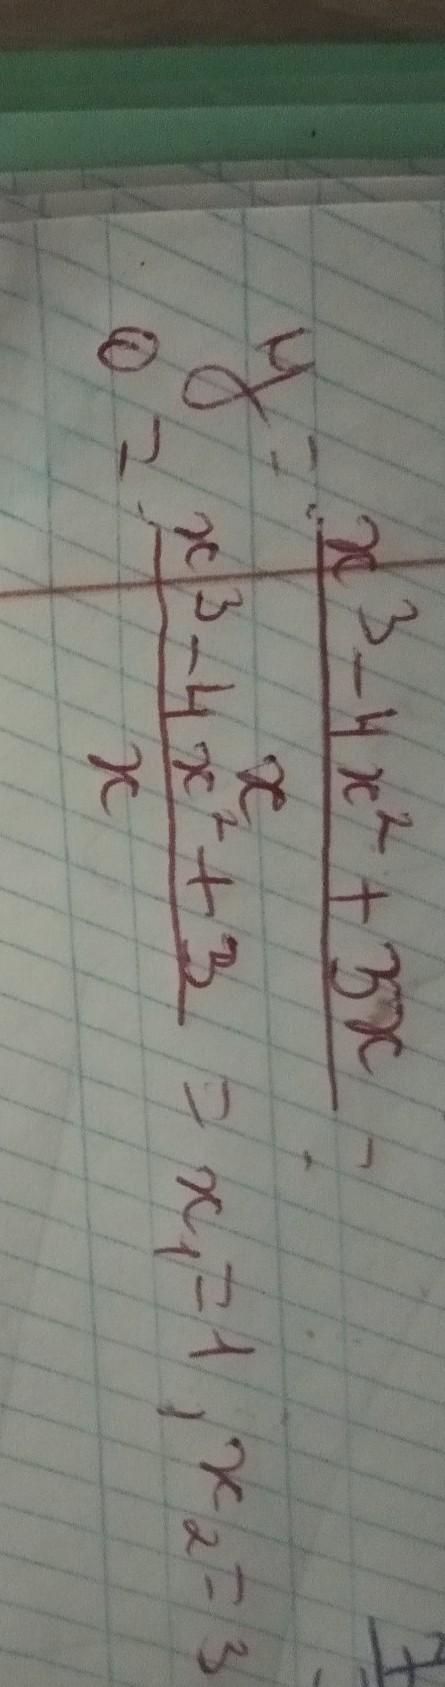 y = x³ - 4x² + 3x =
x
0 = x³ - 4x² + 3 = x₁ = 1, x₂ = 3
x